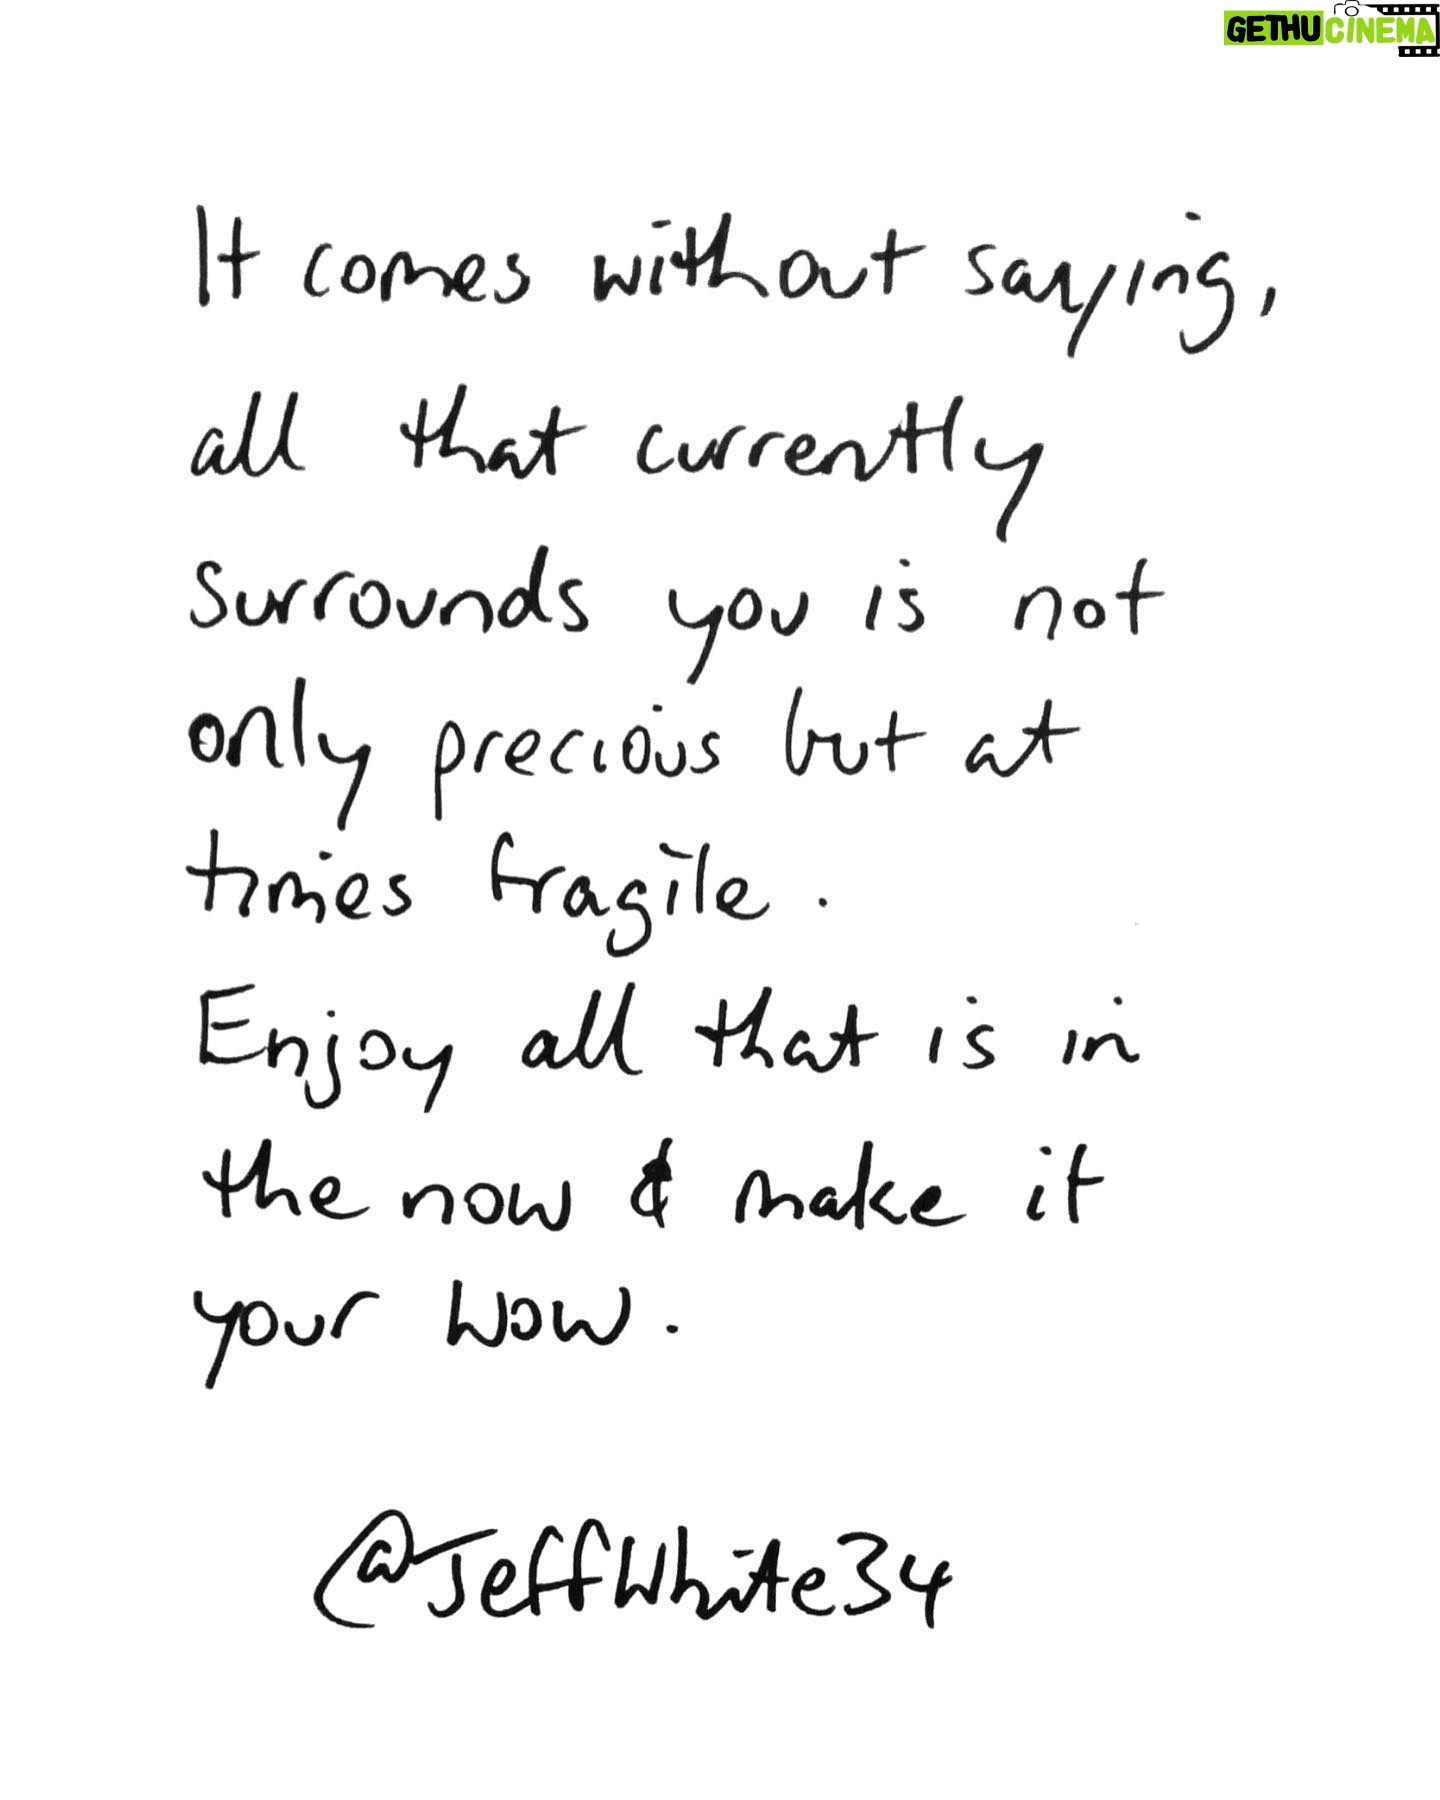 GETHUCINEMA
It comes without saying,
all that currently
surrounds you is not
only precious but at
times fragile.
Enjoy all that is in
the now & make it
your wow.
@JeffWhite34